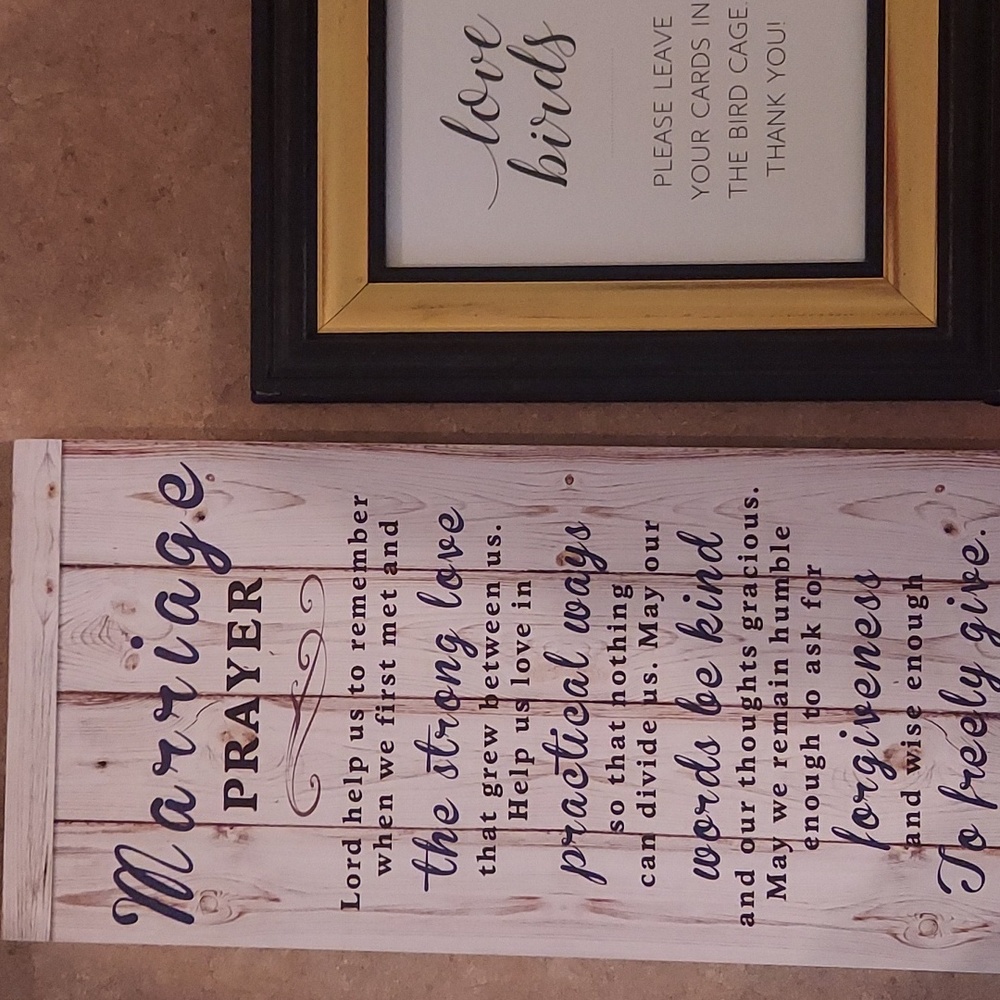 Marriage
PRAYER
Lord help us to remember
when we first met and
the strong love
that grew between us.
Help us love in
practical ways
so that nothing
can divide us. May our
words be kind
and our thoughts gracious.
May we remain humble
enough to ask for
forgiveness
and wise enough
To freely give.
love
birds
PLEASE LEAVE
YOUR CARDS IN
THE BIRD CAGE.
THANK YOU!